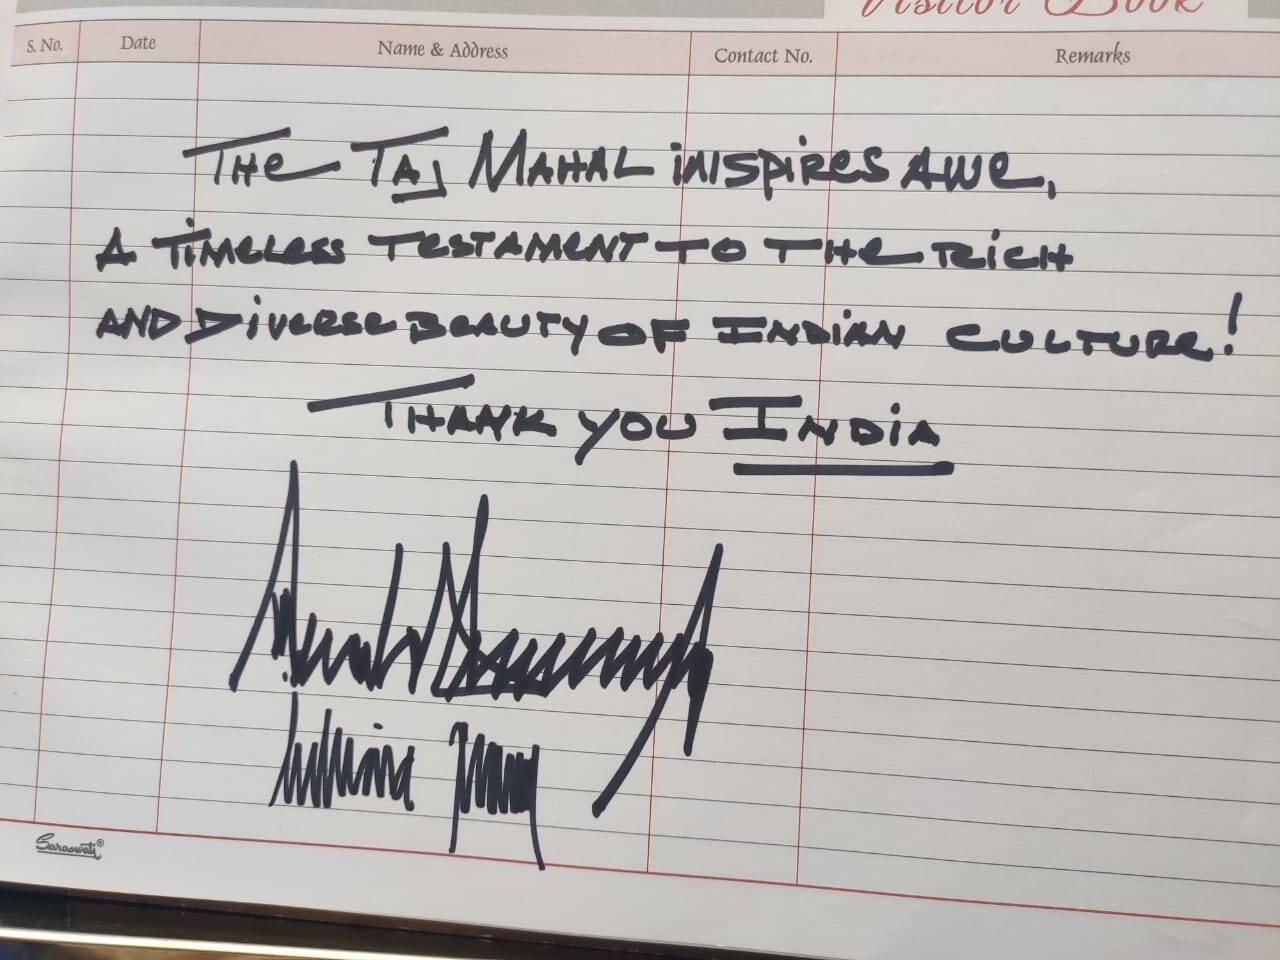 Visitor Book
S. No. Date Name & Address Contact No. Remarks
THE TAJ MAHAL INSPIRES AWE,
A TIMELESS TESTAMENT TO THE RICH
AND DIVERSE BEAUTY OF INDIAN CULTURE!
THANK YOU INDIA
Saraswati®